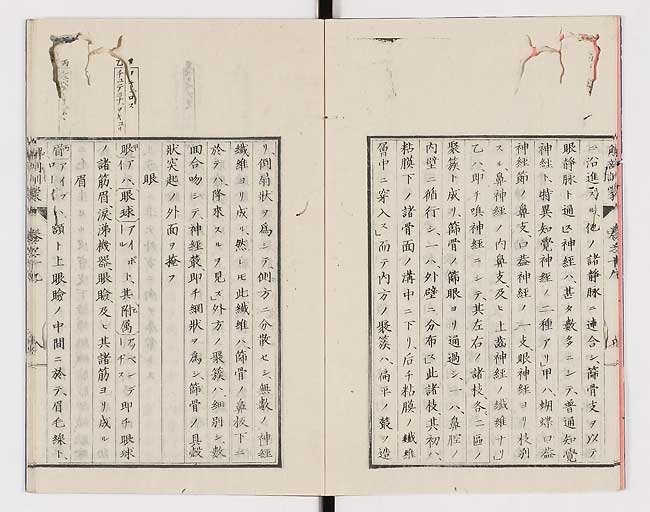 ニ沿進シ、他ノ諸静脉ニ連合シ、篩骨支ヲ以テ
眼静脉ト通ス神経ハ、甚タ数多ニシテ、普通知覚
神経ト、特異知覚神経ノ二種アリ」甲ハ、蝴蝶口蓋
神経節ノ鼻支、口蓋神経ノ一支、眼神経ヨリ枝別
スル、鼻神経ノ内鼻支、及ヒ上歯神経ノ繊維ナリ」
乙ハ即チ嗅神経ニシテ、其左右ノ諸枝、各二区ノ
聚簇ト成リ、篩骨ノ篩眼ヨリ通過シ、一ハ鼻腔ノ
内壁ニ循行シ、一ハ外壁ニ分布ス此諸枝、其初ハ、
粘膜下ノ諸骨面ノ溝中ニ下リ、后チ粘膜ノ繊維
層中ニ穿入ス」而テ内方ノ聚簇ハ、扁平ノ叢ヲ造
リ、側扇状ヲ為シテ、側方ニ分散セシ、無数ノ神経
繊維ヨリ成ル、然レモ此繊維ハ、篩骨ノ鼻板下ニ
於テハ、降来スルヲ見ス外方ノ聚簇ハ、細別シ、数
回合吻シテ、神経叢、即チ網状ヲ為シ、篩骨ノ貝殻
状突起ノ外面ヲ掩フ
眼
眼ハ、眼球ト、其附属即チ眼球
ノ諸筋、眉、涙沸機器、眼瞼、及ヒ其諸筋ヨリ成ル
眉
眉ハ、額ト上眼瞼ノ中間ニ於テ、眉毛